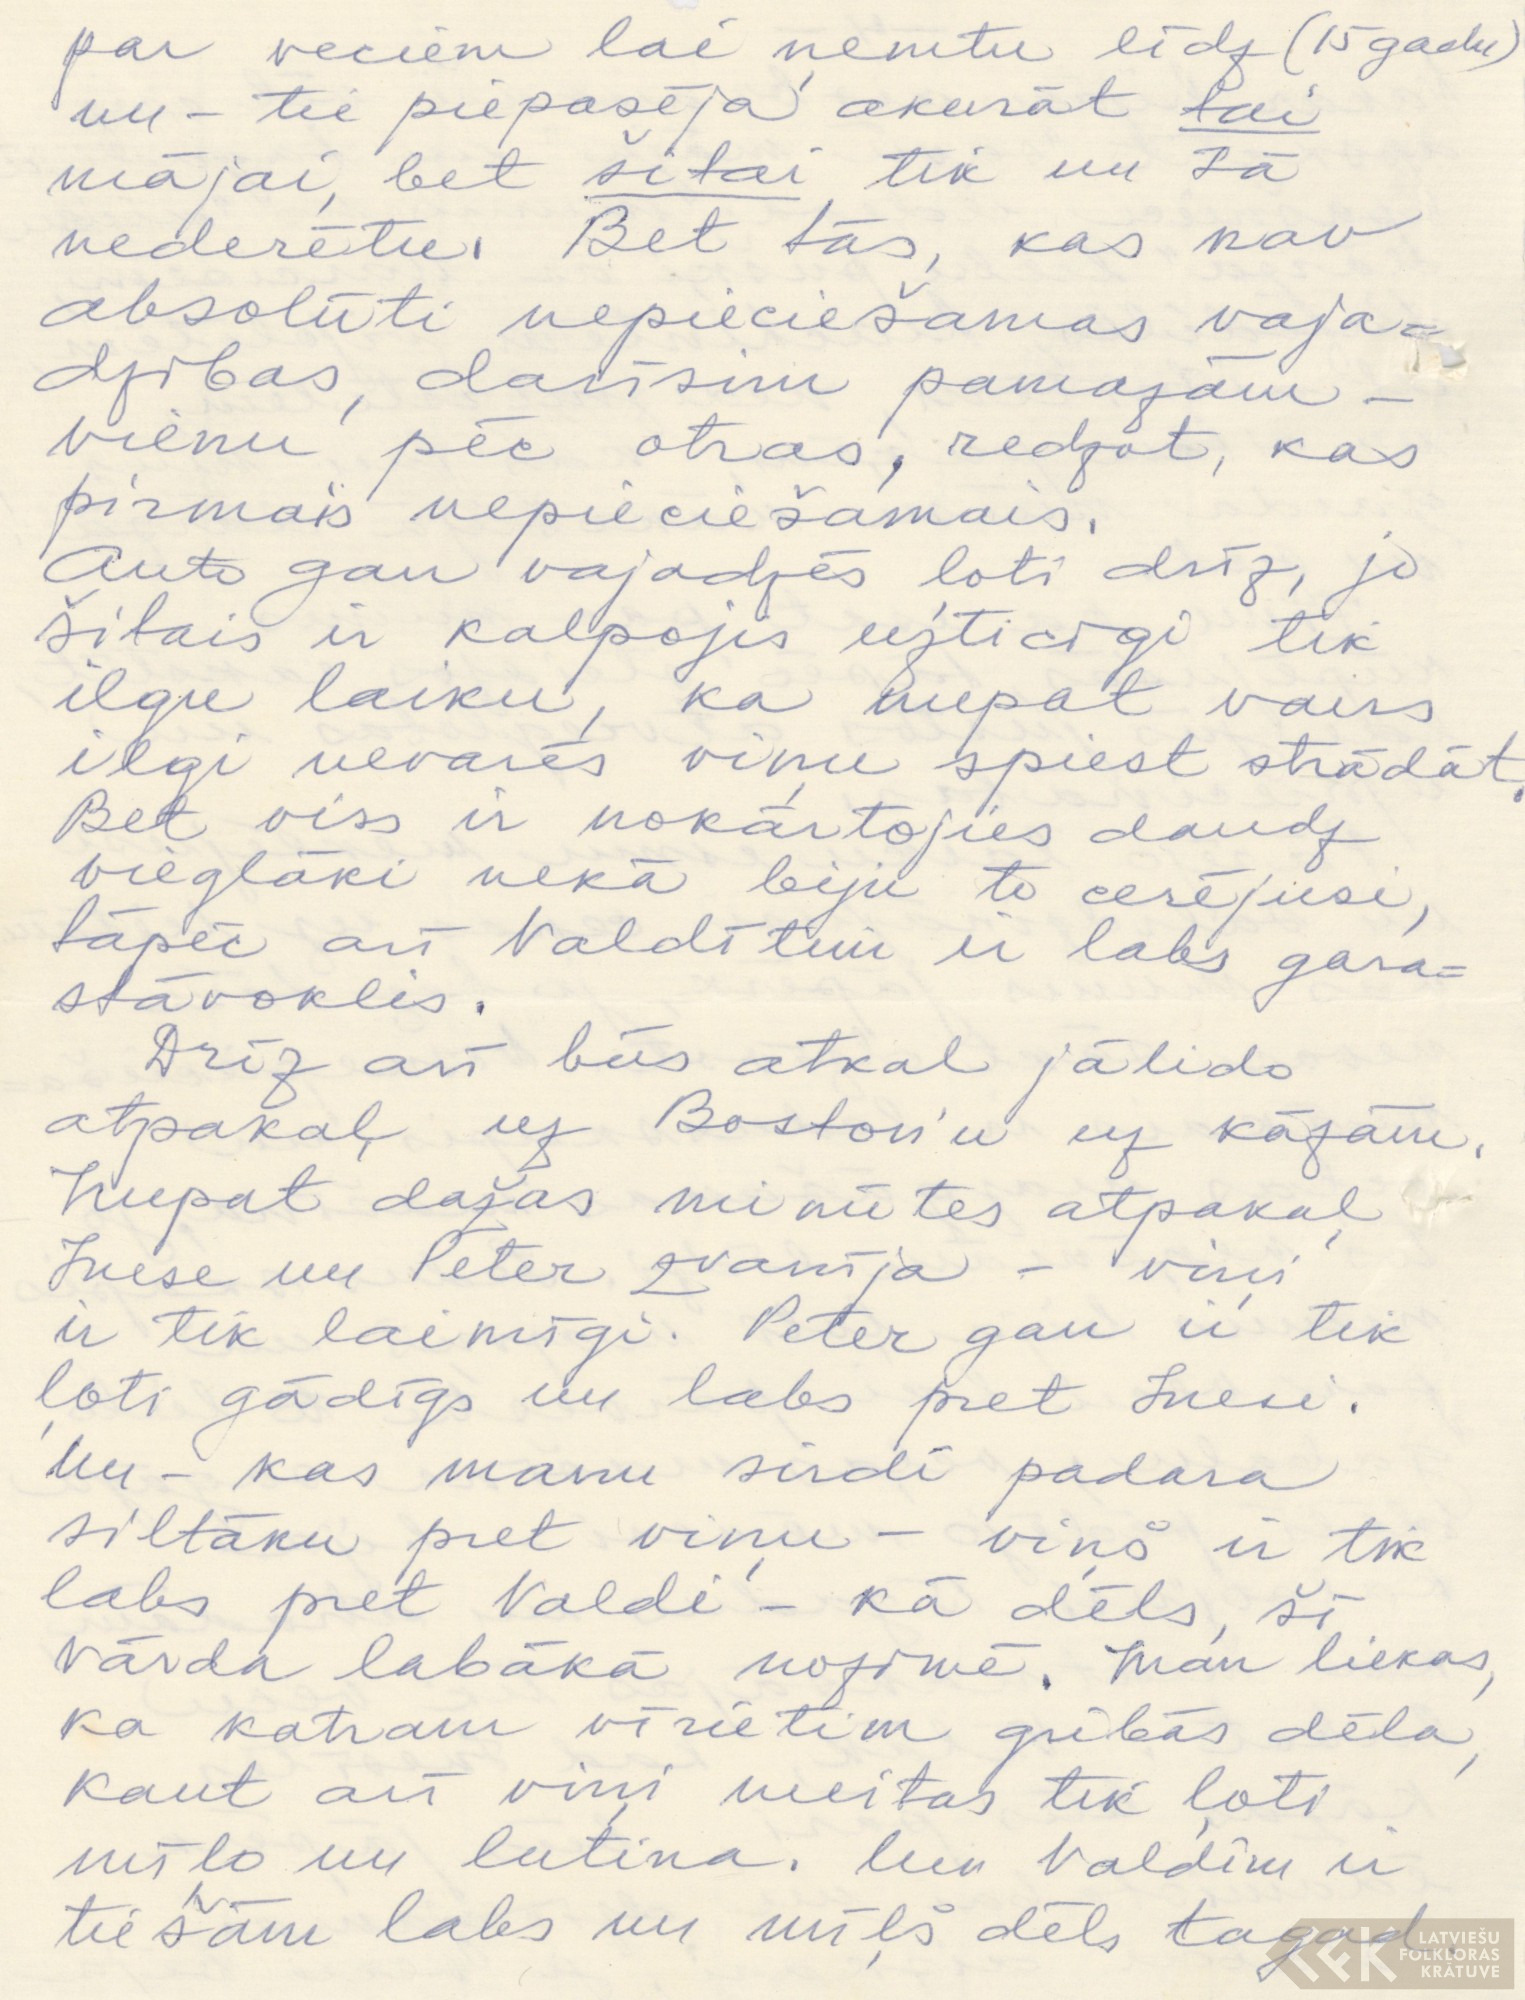 par veciem lai ņemtu līdz (15 gadu)
un – tie piepasēja akurāt tai
mājai, bet šitai tik un tā
nederētu. Bet tās, kas nav
absolūti nepieciešamas vaja=
dzības, darīsim pamazām –
vienu pēc otras, redzot, kas
pirmais nepieciešamais.
Auto gan vajadzēs ļoti drīz, jo
šitais ir kalpojis uzticīgi tik
ilgu laiku, ka nupat vairs
ilgi nevarēs viņu spiest strādāt.
Bet viss ir nokārtojies daudz
vieglāki nekā biju to cerējusi,
tāpēc arī Valdītim ir labs gara=
stāvoklis.
Drīz arī būs atkal jālido
atpakaļ uz Boston'u uz kāzām.
Nupat dažas minūtes atpakaļ
Inese un Peter zvanīja – viņi
ir tik laimīgi. Peter gan ir tik
ļoti gādīgs un labs pret Inesi.
Un – kas manu sirdi padara
siltāku pret viņu – viņš ir tik
labs pret Valdi – kā dēls, šī
vārda labākā nozīmē. Man liekas,
ka katram vīrietim gribās dēla,
kaut arī viņi meitas tik ļoti
mīlo un lutina. Un Valdim ir
tiešām labs un mīļš dēls tagad.
LATVIEŠU
FOLKLORAS
KRĀTUVE